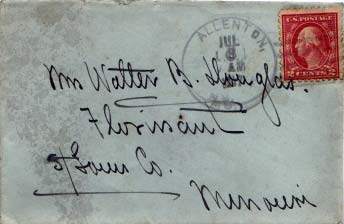 ALLENTON,
JUL
AM
U.S. POSTAGE
2 CENTS 2
Mrs Walter B. Douglas.
Florissant
St Louis Co.
Missouri